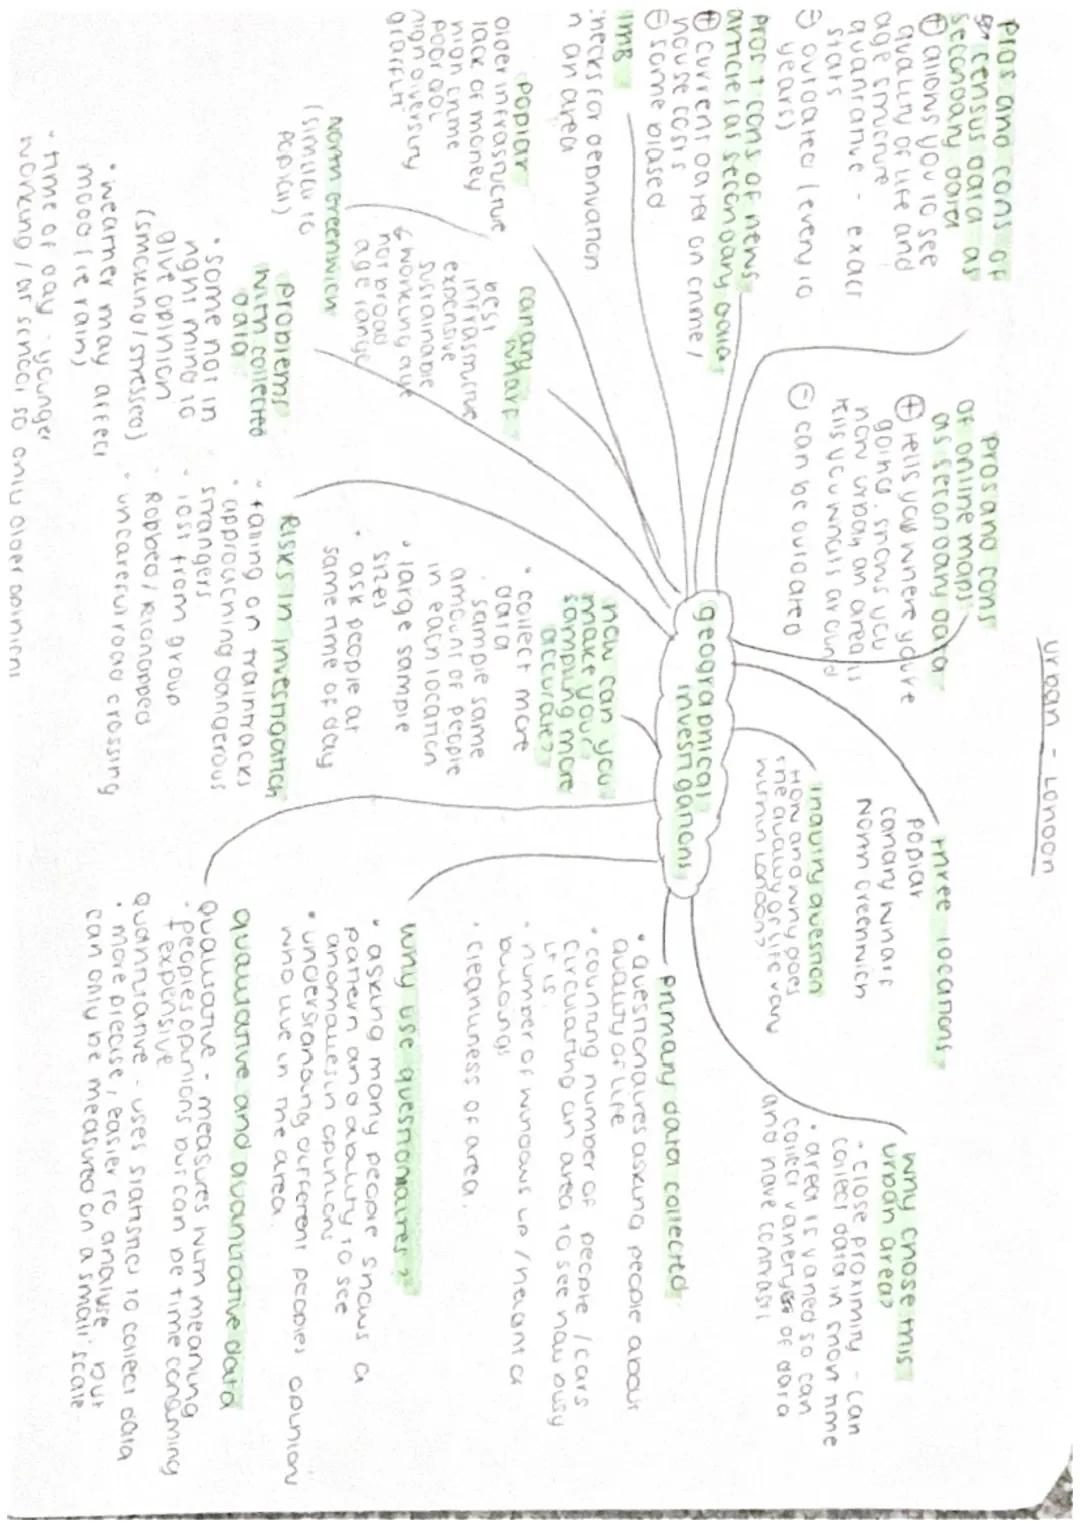 urban - London
pros and cons of
census data as
secondary data
⊕ allows you to see
quality of life and
age structure
quantative - exact
stats
⊖ outdated (every 10
years)
pros + cons of news
articles as secondary data
⊕ current data on crime /
house costs
⊖ some biased
IMB
checks for deprivation
n an area
poplar
older infrastructure
lack of money
high crime
poor QOL
high diversity
graffiti
canary
wharf
best
infrastructure
expensive
sustainable
↳ working age
not broad
age range
North Greenwich
(similar to
poplar)
problems
with collected
data
• some not in
right mind to
give opinion
(smoking / stressed)
• weather may affect
mood (ie rain)
• time of day - younger
working / at school so only older opinions
pros and cons
of online maps
as secondary data
⊕ tells you where you're
going, shows you
how urban an area is
tells you whats around
⊖ can be outdated
geographical
investigations
how can you
make your
sampling more
accurate?
• collect more
data
• sample same
amount of people
in each location
• large sample
sizes
• ask people at
same time of day
Risks in investigation
• falling on traintracks
• approaching dangerous
strangers
• lost from group
Robbed / kidnapped
• uncareful road crossing
three locations
Poplar
canary wharf
North Greenwich
inquiry question
How and why does
the quality of life vary
within London?
why chose this
urban area?
• close proximity - can
collect data in short time
• area is varied so can
collect variety of data
and have contrast
primary data collected
• questionaires asking people about
quality of life
• counting number of people / cars
circulating an area to see how busy
it is
• number of windows up / vacant or
buildings
• cleanliness of area.
why use questionnaires?
• asking many people shows a
patern and ability to see
anomalies in opinions
• understanding different peoples opinion
who live in the area.
qualitative and quantitative data
Qualitative - measures with meaning
• peoples opinions but can be time consming
+ expensive
Quantitative - uses statistics to collect data
• more precise, easier to analyse but
can only be measured on a small scale.